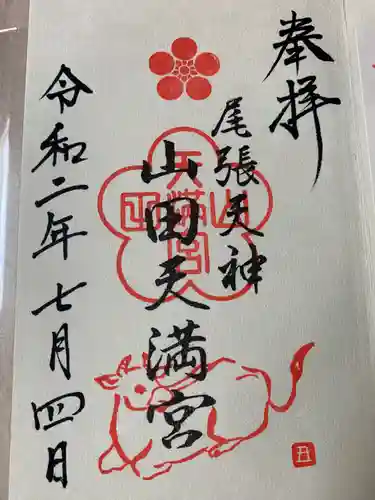 奉拝
尾張天神
山田天満宮
令和二年七月四日
山田天満宮
丑